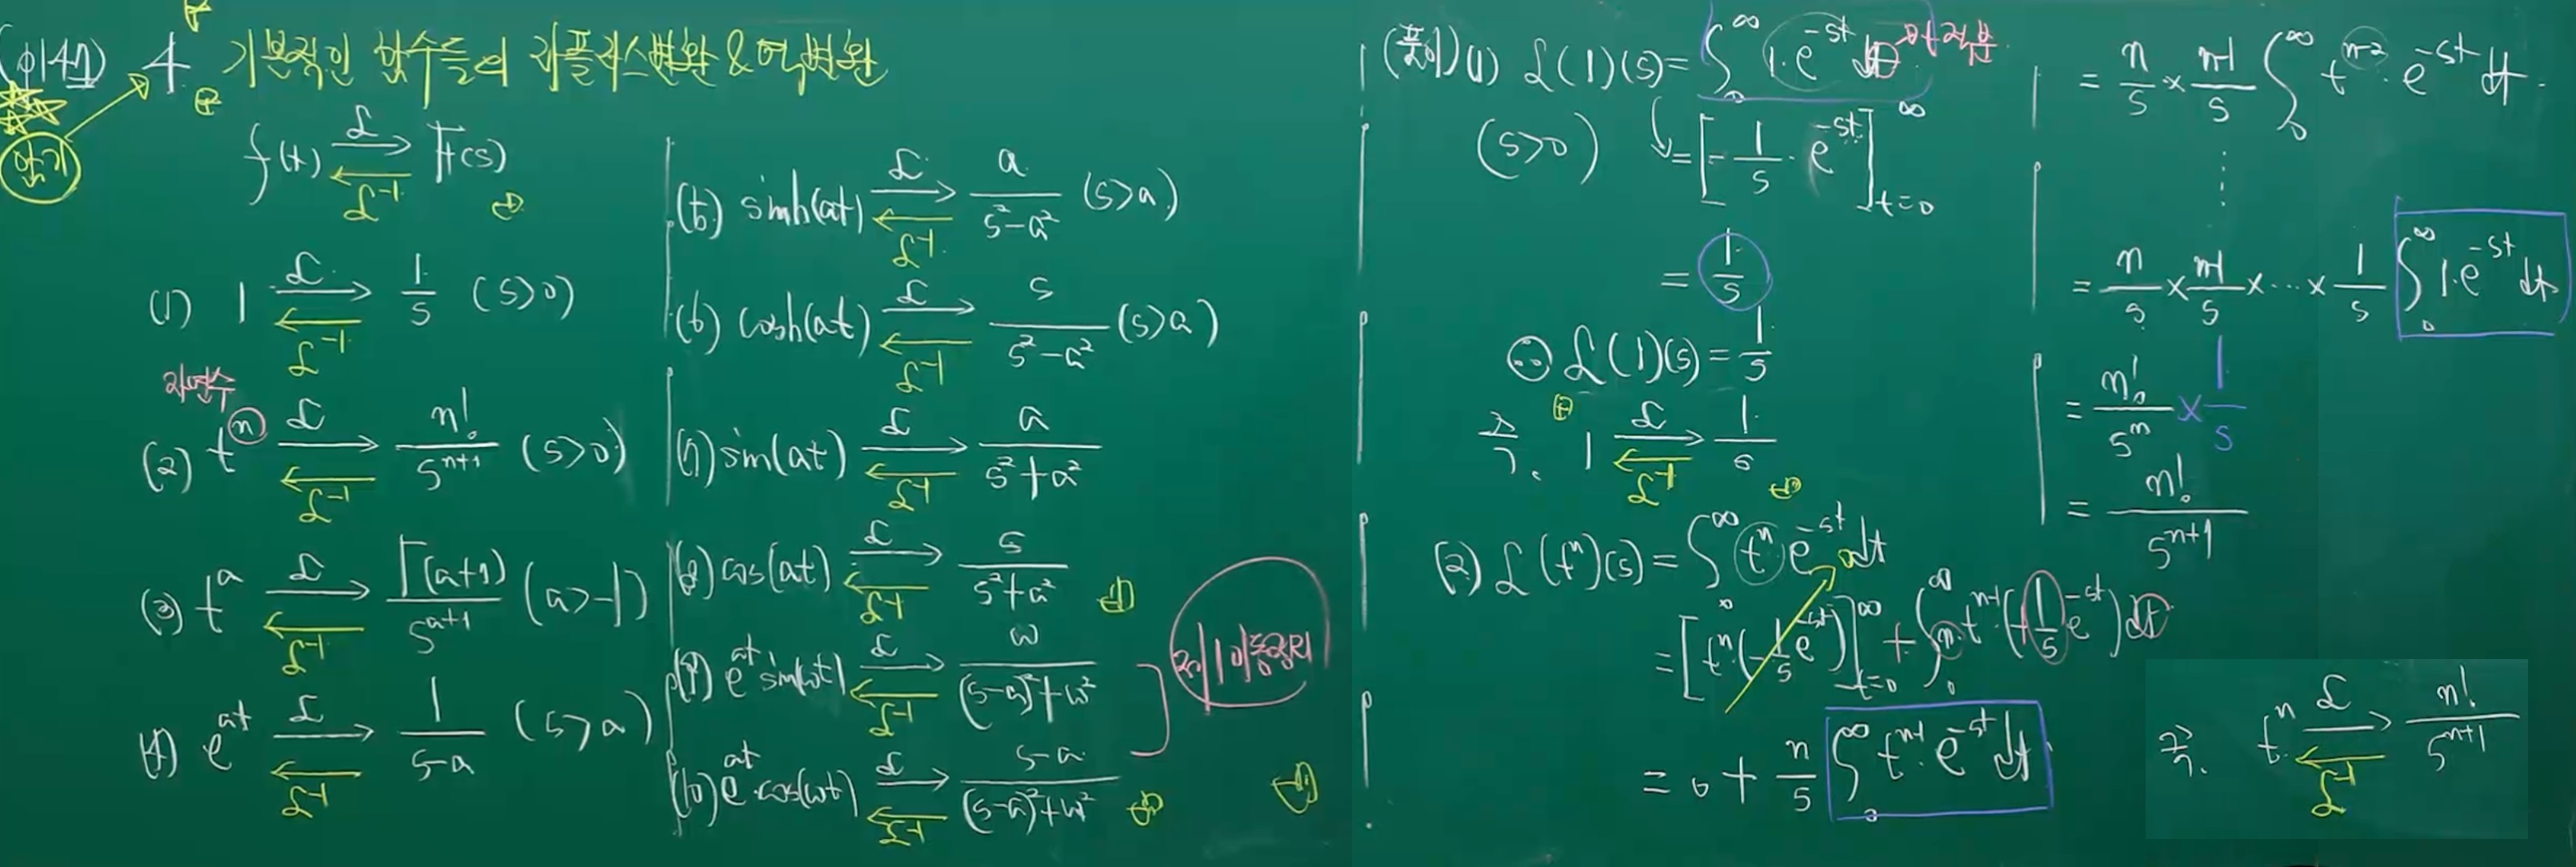 (p147) 4 기본적인 함수들의 라플라스변환 & 역변환
암기
f(t) ℒ ⇄ ℒ⁻¹ F(s)
(1) 1 ℒ ⇄ ℒ⁻¹ 1/s (s>0)
자연수
(2) tⁿ ℒ ⇄ ℒ⁻¹ n!/sⁿ⁺¹ (s>0)
(3) tᵃ ℒ ⇄ ℒ⁻¹ Γ(a+1)/sᵃ⁺¹ (a>-1)
(4) eᵃᵗ ℒ ⇄ ℒ⁻¹ 1/(s-a) (s>a)
sinh(at) ℒ ⇄ ℒ⁻¹ a/(s²-a²) (s>a)
(6) cosh(at) ℒ ⇄ ℒ⁻¹ s/(s²-a²) (s>a)
(7) sin(at) ℒ ⇄ ℒ⁻¹ a/(s²+a²)
(8) cos(at) ℒ ⇄ ℒ⁻¹ s/(s²+a²)
(9) eᵃᵗ sin(ωt) ℒ ⇄ ℒ⁻¹ ω/((s-a)²+ω²)
(10) eᵃᵗ cos(ωt) ℒ ⇄ ℒ⁻¹ (s-a)/((s-a)²+ω²)
(풀이) (1) ℒ(1)(s) = ∫₀^∞ 1·e⁻ˢᵗ dt
(s>0) = [-1/s · e⁻ˢᵗ]_{t=0}^∞
= 1/s
∴ ℒ(1)(s) = 1/s
즉. 1 ℒ ⇄ ℒ⁻¹ 1/s
(2) ℒ(tⁿ)(s) = ∫₀^∞ tⁿ e⁻ˢᵗ dt
= [tⁿ(-1/s e⁻ˢᵗ)]_{t=0}^∞ + ∫₀^∞ n·tⁿ⁻¹(+1/s e⁻ˢᵗ)dt
= 0 + n/s ∫₀^∞ tⁿ⁻¹·e⁻ˢᵗ dt
= n/s × (n-1)/s ∫₀^∞ tⁿ⁻²·e⁻ˢᵗ dt
⋮
= n/s × (n-1)/s × ⋯ × 1/s ∫₀^∞ 1·e⁻ˢᵗ dt
= n!/sⁿ × 1/s
= n!/sⁿ⁺¹
즉. tⁿ ℒ ⇄ ℒ⁻¹ n!/sⁿ⁺¹